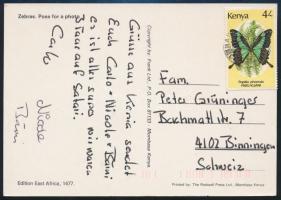 Zebras. Pose for a photo
Grüsse aus Kenia sendet
Euch Carlo + Nicole + Bruni
es ist alles super wir waren
3 Tage auf Safari.
Carlo
Nicole
Bruni
Edition East Africa, 1477.
Copyright by: Frank Ltd., P.O. Box 81731 - Mombasa Kenya.
Kenya 4/-
Fam.
Peter Grüninger
Bachmattstr. 7
4102 Binningen
Schweiz
Printed by: The Rodwell Press Ltd., Mombasa Kenya.